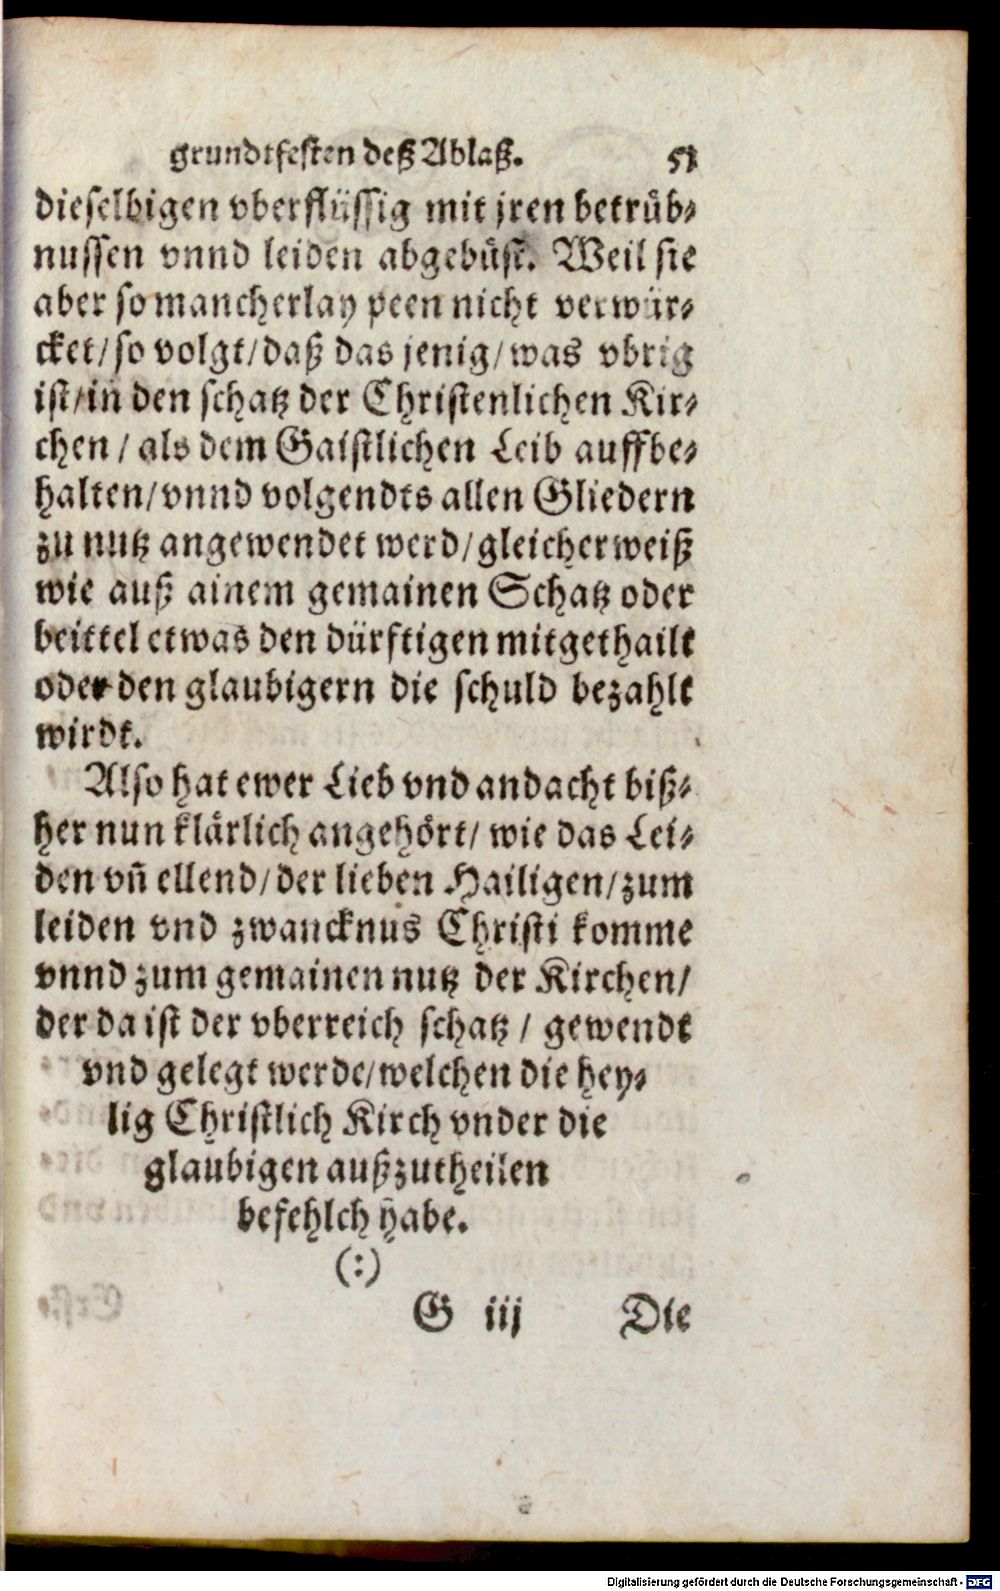 grundtfesten deß Ablaß. 51
dieselbigen vberflüssig mit jren betrüb⸗
nussen vnnd leiden abgebüst. Weil sie
aber so mancherlay peen nicht verwür⸗
cket/ so volgt/ daß das jenig/ was vbrig
ist/ in den schatz der Christenlichen Kir⸗
chen / als dem Gaistlichen Leib auffbe⸗
halten/ vnnd volgendts allen Gliedern
zu nutz angewendet werd/ gleicherweiß
wie auß ainem gemainen Schatz oder
beittel etwas den dürftigen mitgethailt
oder den glaubigern die schuld bezahlt
wirdt.
Also hat ewer Lieb vnd andacht biß⸗
her nun klärlich angehört/ wie das Lei⸗
den vñ ellend/ der lieben Hailigen/ zum
leiden vnd zwancknus Christi komme
vnnd zum gemainen nutz der Kirchen/
der da ist der vberreich schatz / gewendt
vnd gelegt werde/ welchen die hey⸗
lig Christlich Kirch vnder die
glaubigen außzutheilen
befehlch habe.
(:)
G iij Die
Digitalisierung gefördert durch die Deutsche Forschungsgemeinschaft - DFG